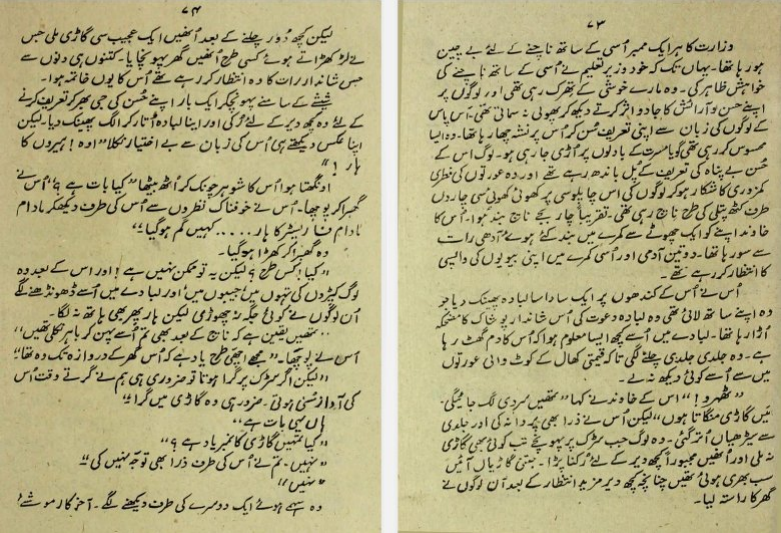 ۷۳
وزارت کا ہر ایک ممبر اُسی کے ساتھ ناچنے کے لئے بے چین
ہو رہا تھا۔ یہاں تک کہ خود وزیر تعلیم نے اُسی کے ساتھ ناچنے کی
خواہش ظاہر کی۔ وہ مارے خوشی کے تھرک رہی تھی اور لوگوں پر
اپنے حسن و آرائش کا جادو اثر کرتے دیکھ کر پھولی نہ سماتی تھی۔ آس پاس
کے لوگوں کی زبان سے اپنی تعریف سُن کر اُس پر نشہ چھا رہا تھا۔ وہ ایسا
محسوس کر رہی تھی گویا مسرت کے بادلوں پر اُڑی جا رہی ہو۔ لوگ اس کے
حسن بے پناہ کی تعریف کے پُل باندھ رہے تھے اور وہ عورتوں کی فطری
کمزوری کا شکار ہو کر لوگوں کی اس چاپلوسی پر کھوئی کھوئی سی چاروں
طرف کٹھ پتلی کی طرح ناچ رہی تھی۔ تقریباً چار بجے ناچ بند ہوا۔ اُس کا
خاوند اپنے کو ایک چھوٹے سے کمرے میں بند کئے ہوئے آدھی رات
سے سو رہا تھا۔ دو تین آدمی اور اُسی کمرے میں اپنی بیویوں کی واپسی
کا انتظار کر رہے تھے۔
اُس نے اُس کے کندھوں پر ایک سادا سا لبادہ پھینک دیا جو
وہ اپنے ساتھ لائی تھی وہ لبادہ دعوت کی اُس شاندار پوشاک کا مضحکہ
اُڑا رہا تھا۔ لبادے میں اُسے کچھ ایسا معلوم ہوا کہ اُس کا دم گھٹ رہا
ہے۔ وہ جلدی جلدی چلنے لگی تاکہ قیمتی کھال کے کوٹ والی عورتوں
میں سے اُسے کوئی دیکھ نہ لے۔
"ٹھہرو!" اس کے خاوند نے کہا "تمھیں سردی لگ جائیگی۔
میں گاڑی منگاتا ہوں" لیکن اُس نے ذرا بھی پروا نہ کی اور جلدی
سے سیڑھیاں اُتر گئی۔ وہ لوگ جب سڑک پر پہونچے تب کوئی بھی گاڑی
نہ ملی اور اُنھیں مجبوراً کچھ دیر کے لئے رُکنا پڑا۔ جتنی گاڑیاں آئیں
سب بھری ہوئی تھیں چنانچہ کچھ دیر مزید انتظار کے بعد اُن لوگوں نے
گھر کا راستہ لیا۔
۷۴
لیکن کچھ دُور چلنے کے بعد اُنھیں ایک عجیب سی گاڑی ملی جس
نے لڑکھڑاتے ہوئے کسی طرح اُنھیں گھر پہونچایا۔ کتنوں ہی دنوں سے
جس شاندار رات کا وہ انتظار کر رہے تھے اُس کا یوں خاتمہ ہوا۔
شیشے کے سامنے پہونچکر ایک بار اپنے حُسن کی جی بھر کر تعریف کرنے
کے لئے وہ کچھ دیر کے لئے رُکی اور اپنا لبادہ اُتار کر الگ پھینک دیا۔ لیکن
اپنا عکس دیکھتے ہی اُس کی زبان سے بے اختیار نکلا "اوہ! ہیروں کا
ہار!"
اونگھتا ہوا اُس کا شوہر چونک کر اُٹھ بیٹھا "کیا بات ہے؟" اُس نے
گھبرا کر پوچھا۔ اُس نے خوفناک نظروں سے اُس کی طرف دیکھکر مادام
مادام فاریٹر کا ہار..... کہیں گم ہو گیا"
وہ گھبرا کر کھڑا ہو گیا۔
"کیا! کس طرح؟ لیکن یہ تو ممکن نہیں ہے! اور اس کے بعد وہ
لوگ کپڑوں کی تہوں میں، جیبوں میں اور لبادے میں اُسے ڈھونڈھنے لگے
اُن لوگوں نے کوئی جگہ نہ چھوڑی لیکن ہار پھر بھی ہاتھ نہ لگا۔
"تمھیں یقین ہے کہ ناچ کے بعد بھی تم اُسے پہن کر باہر نکلی تھیں"
اُس نے پوچھا۔ "مجھے اچھی طرح یاد ہے کہ اُس گھر کے دروازہ تک وہ تھا"
"لیکن اگر سڑک پر گرا ہوتا تو ضروری ہی ہم نے گرتے وقت اُس
کی آواز سُنی ہوتی۔ ضرور ہی وہ گاڑی میں گرا"
"ہاں یہی بات ہے"
"کیا تمھیں گاڑی کا نمبر یاد ہے؟"
"نہیں۔ تم نے اُس کی طرف ذرا بھی توجہ نہیں کی"
"نہیں"
وہ سہمے ہوئے ایک دوسرے کی طرف دیکھنے لگے۔ آخر کار موشے